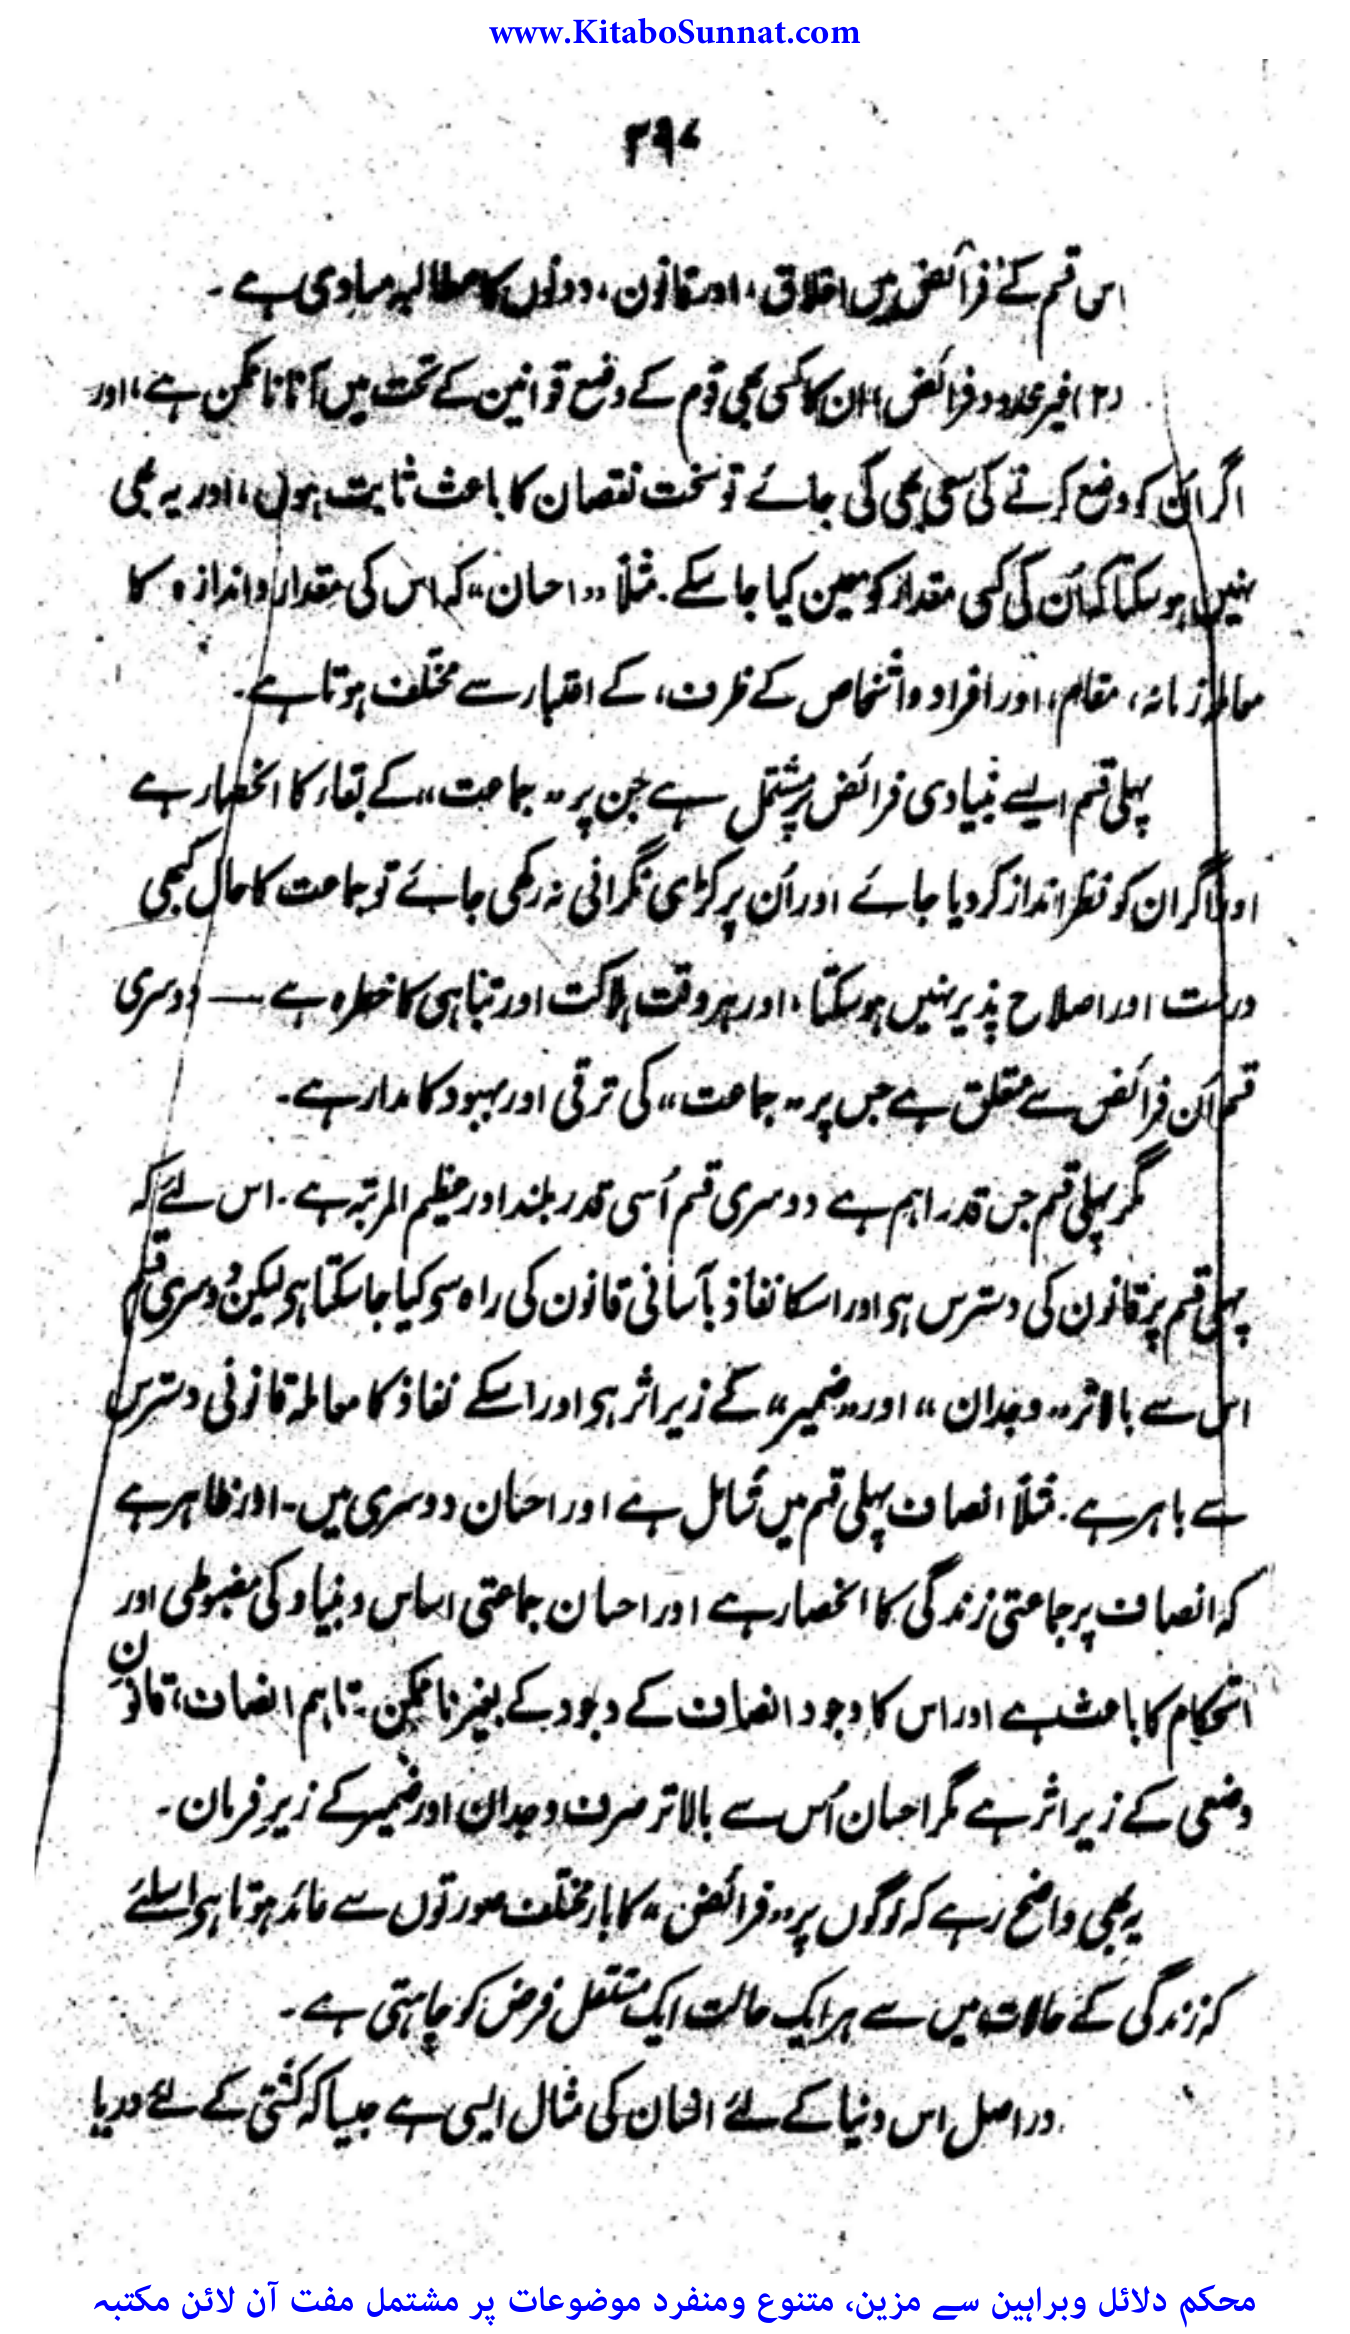 www.KitaboSunnat.com
۳۹۷
اس قسم کے فرائض میں اخلاق، اور قانون، دونوں کا مطالبہ مساوی ہے۔
(۲) غیر محدود فرائض، ان کا کسی بھی قوم کے وضع قوانین کے تحت میں آنا ناممکن ہے، اور
اگر اُن کو وضع کرنے کی سعی بھی کی جائے تو سخت نقصان کا باعث ثابت ہوں، اور یہ بھی
نہیں ہو سکتا کہ اُن کی کسی مقدار کو معین کیا جا سکے۔ مثلاً ”احسان“ کہ اس کی مقدار و اندازہ کا
معاملہ زمانہ، مقام، اور افراد و اشخاص کے ظرف، کے اعتبار سے مختلف ہوتا ہے۔
پہلی قسم ایسے بنیادی فرائض پر مشتمل ہے جن پر ”جماعت“ کے بقاء کا انحصار ہے
اور اگر ان کو نظر انداز کر دیا جائے اور اُن پر کڑی نگرانی نہ رکھی جائے تو جماعت کا حال کبھی
درست اور اصلاح پذیر نہیں ہو سکتا، اور ہر وقت ہلاکت اور تباہی کا خطرہ ہے — دوسری
قسم اُن فرائض سے متعلق ہے جس پر ”جماعت“ کی ترقی اور بہبود کا مدار ہے۔
مگر پہلی قسم جس قدر اہم ہے دوسری قسم اُسی قدر بلند اور عظیم المرتبہ ہے۔ اس لئے کہ
پہلی قسم پر قانون کی دسترس ہے اور اسکا نفاذ بآسانی قانون کی راہ سے کیا جا سکتا ہے لیکن دوسری قسم
اس سے بالاتر ”وجدان“ اور ”ضمیر“ کے زیر اثر ہے اور اسکے نفاذ کا معاملہ قانونی دسترس
سے باہر ہے۔ مثلاً انصاف پہلی قسم میں شامل ہے اور احسان دوسری میں۔ اور ظاہر ہے
کہ انصاف پر جماعتی زندگی کا انحصار ہے اور احسان جماعتی اساس و بنیاد کی مضبوطی اور
استحکام کا باعث ہے اور اس کا وجود انصاف کے وجود کے بغیر ناممکن۔ تاہم انصاف، قانون
وضعی کے زیر اثر ہے مگر احسان اُس سے بالاتر صرف وجدان اور ضمیر کے زیرِ فرمان۔
یہ بھی واضح رہے کہ لوگوں پر ”فرائض“ کا بار مختلف صورتوں سے عائد ہوتا ہے اسلئے
کہ زندگی کے حالات میں سے ہر ایک حالت ایک مستقل فرض کو چاہتی ہے۔
دراصل اس دنیا کے لئے انسان کی مثال ایسی ہے جیسا کہ کشتی کے لئے دریا
محکم دلائل وبراہین سے مزین، متنوع ومنفرد موضوعات پر مشتمل مفت آن لائن مکتبہ